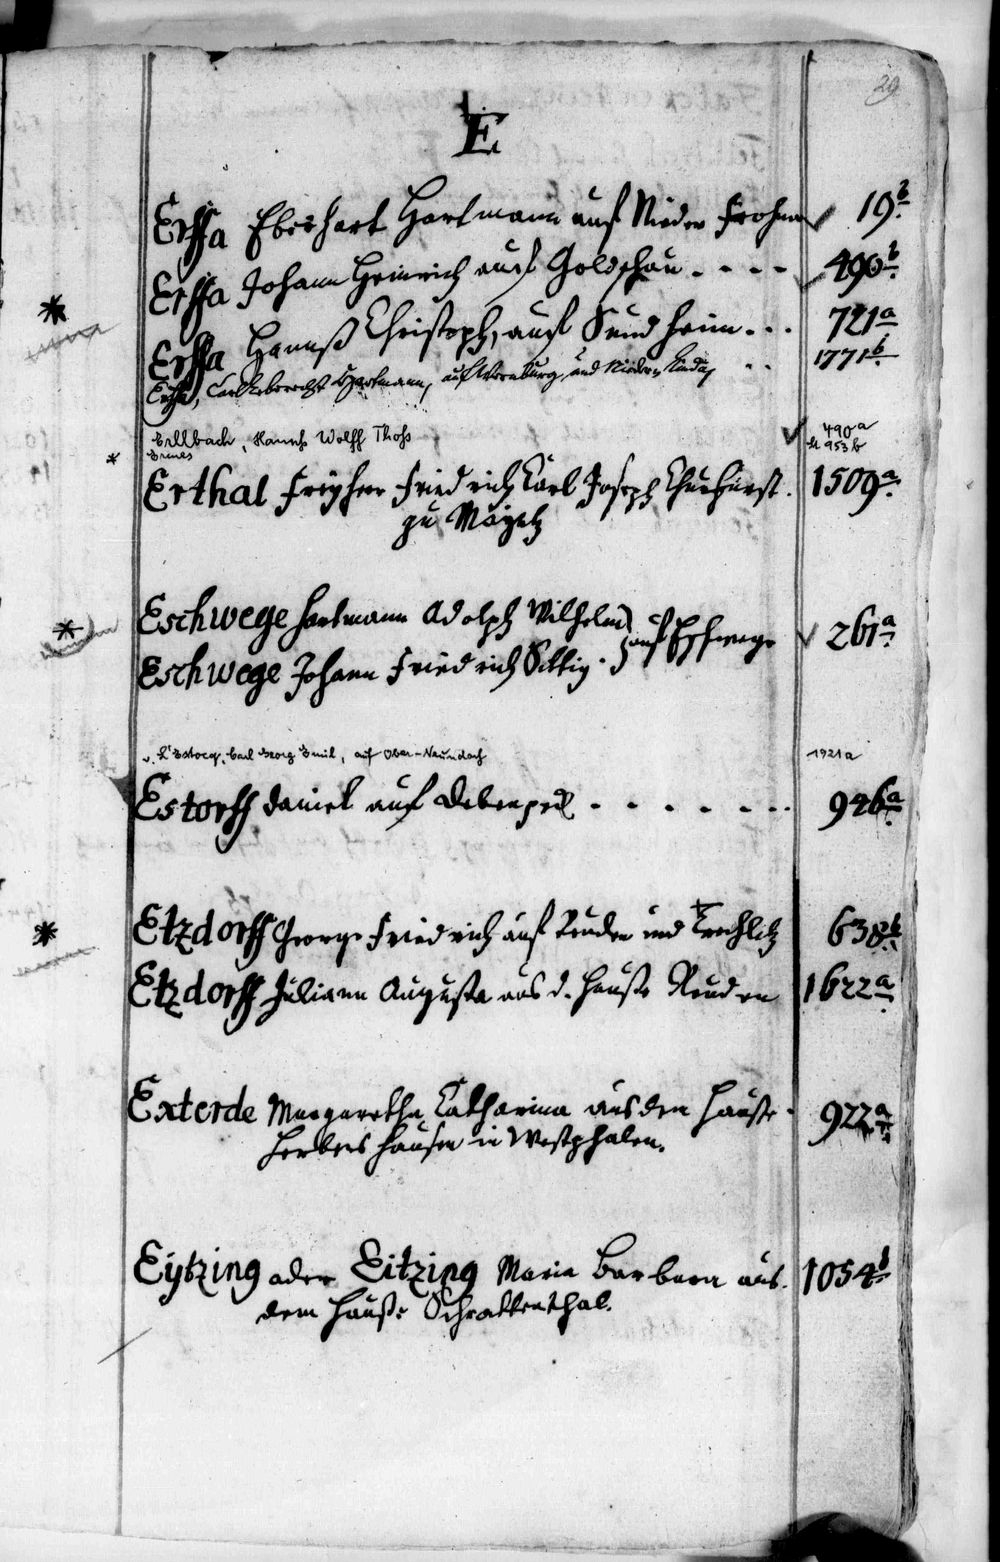 29
E
Erffa Eberhart Hartmann auf Nieder Frohna 19b.
Erffa Johann Heinrich auf Goldschau. - - - 490b
Erffa Hannß Christoph, auf Sundheim... 721a
Erffa, Carl Leberecht Hartmann, auf Wernburg und Nieder Linda, .. 1771b
Erllbach, Hannß Wolff Thoß 490a
u 953b
Erthal Freyherr Friedrich Carl Joseph Churfürst. 1509a
zu Mayntz
Eschwege Hartmann Adolph Wilhelm } auf Eschwege 261a
Eschwege Johann Friedrich Sittig.
v. L'Estocq, Carl Georg Emil, auf Ober-Neundorf 1921a
Estorff Daniel auf - - - - - - 946a
Etzdorff George Friedrich auf Reuden und 638b
Etzdorff Juliana Augusta aus d. Hauße Reuden 1622a
Exterde Margaretha Catharina aus den Hauße. 922a
Herbershausen in Westphalen.
Eytzing oder Eitzing Maria Barbara aus. 1054b
dem Hauße Schrattenthal.